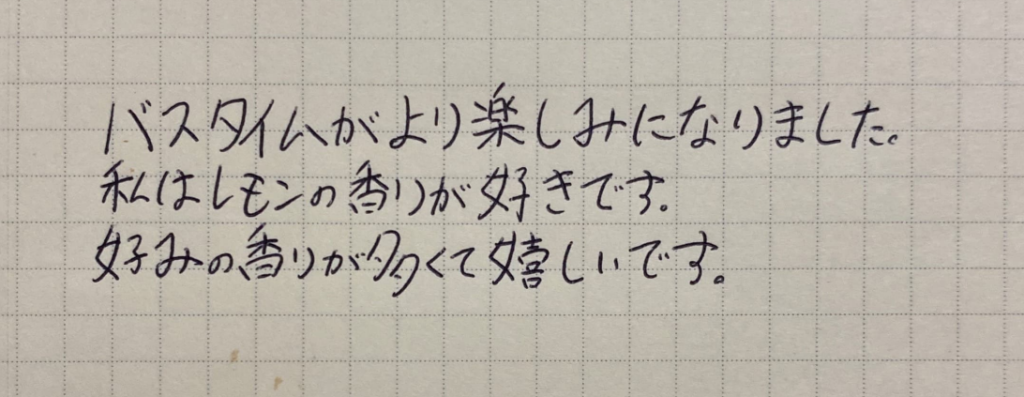 バスタイムがより楽しみになりました。
私はレモンの香りが好きです。
好みの香りが多くて嬉しいです。